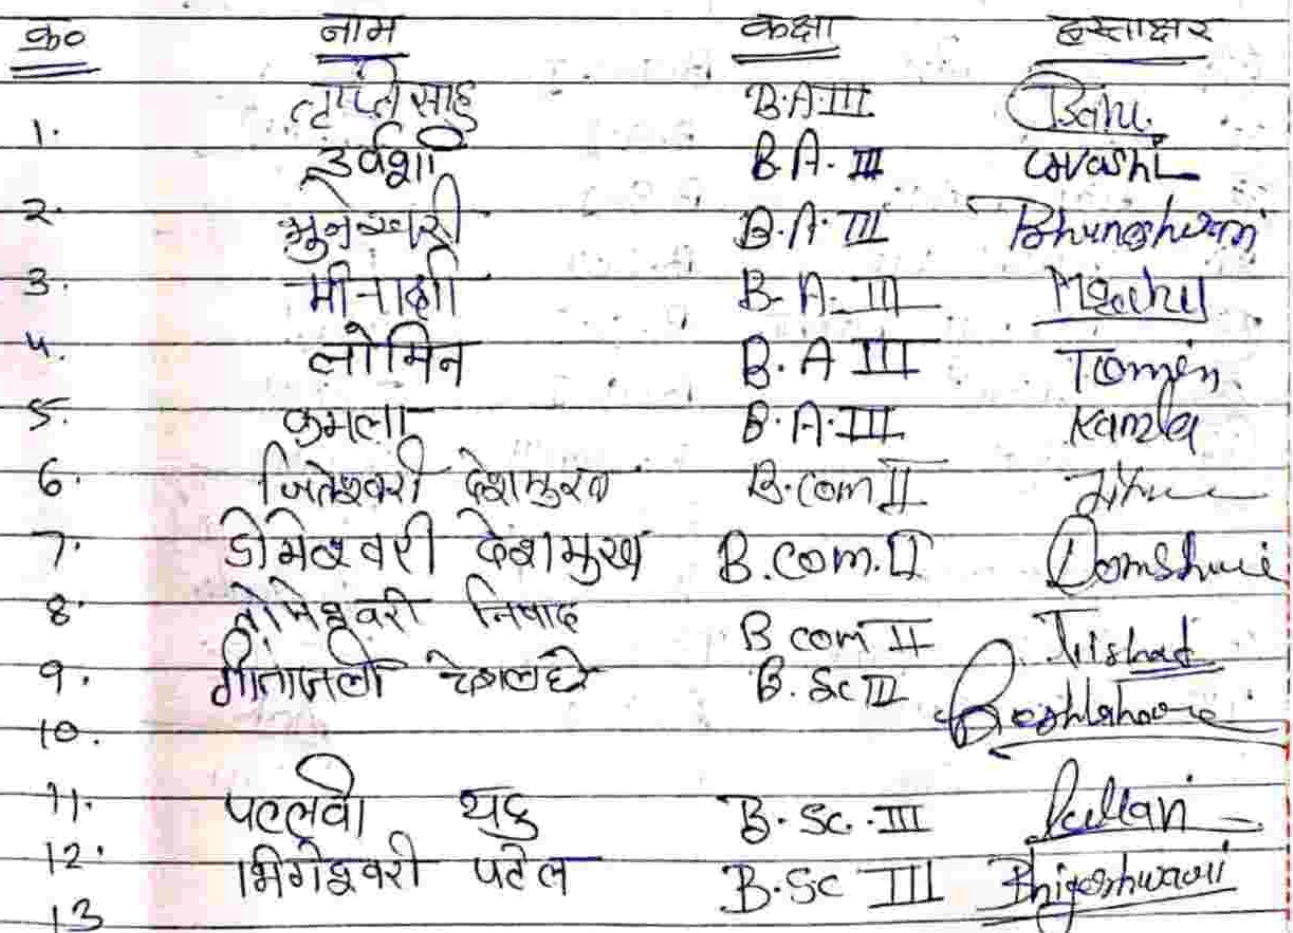 क्र० नाम कक्षा हस्ताक्षर
तृप्ति साहु B.A.III Sahu
1.
उर्वशी B.A. III Urvashi
2.
भुनेश्वरी B.A. III Bhuneshwari
3.
मीनाक्षी B.A. III
4.
लोमिन B.A III Tomin
5.
कुमला B.A.III Kamla
6. जितेश्वरी देशमुख B.Com II
7. डोमेश्वरी देशमुख B.Com.II Domshwri
8. तोमेश्वरी निषाद B com II Nishad
9. गीतांजली देशलहरे B. Sc III Deshlahare
10.
11. पल्लवी यदु B.Sc. III Pallavi
12. भिगेश्वरी पटेल B.Sc III Bhigeshwari
13